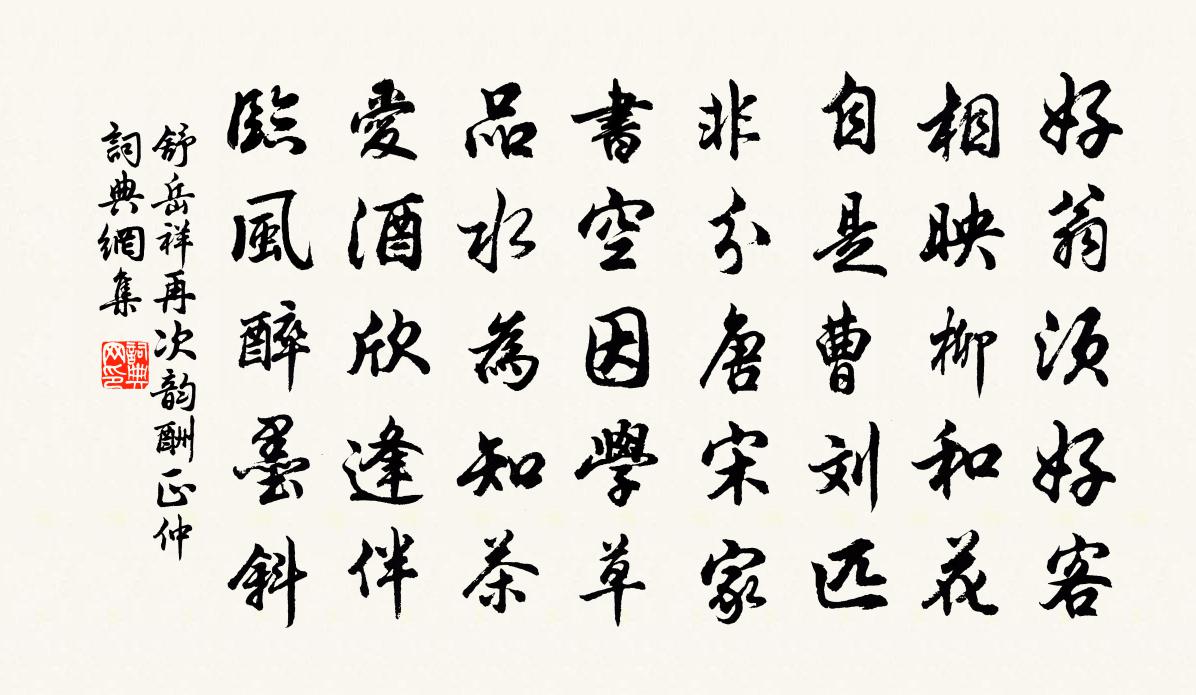 好翁須好客
相映柳和花
自是曹刘匹
非分唐宋家
書空因學草
品水為知茶
愛酒欣逢伴
臨風醉墨斜
舒岳祥再次韵酬正仲
詞典網集
詞典網印